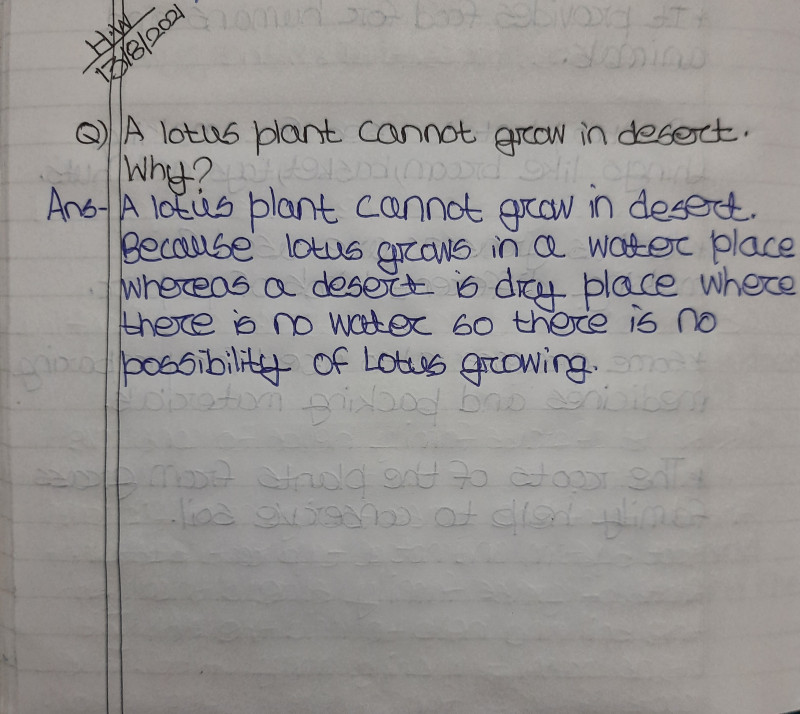 H.W
13/8/2021
Q) A lotus plant cannot grow in desert.
Why?
Ans- A lotus plant cannot grow in desert.
Because lotus grows in a water place
whereas a desert is dry place where
there is no water so there is no
possibility of Lotus growing.